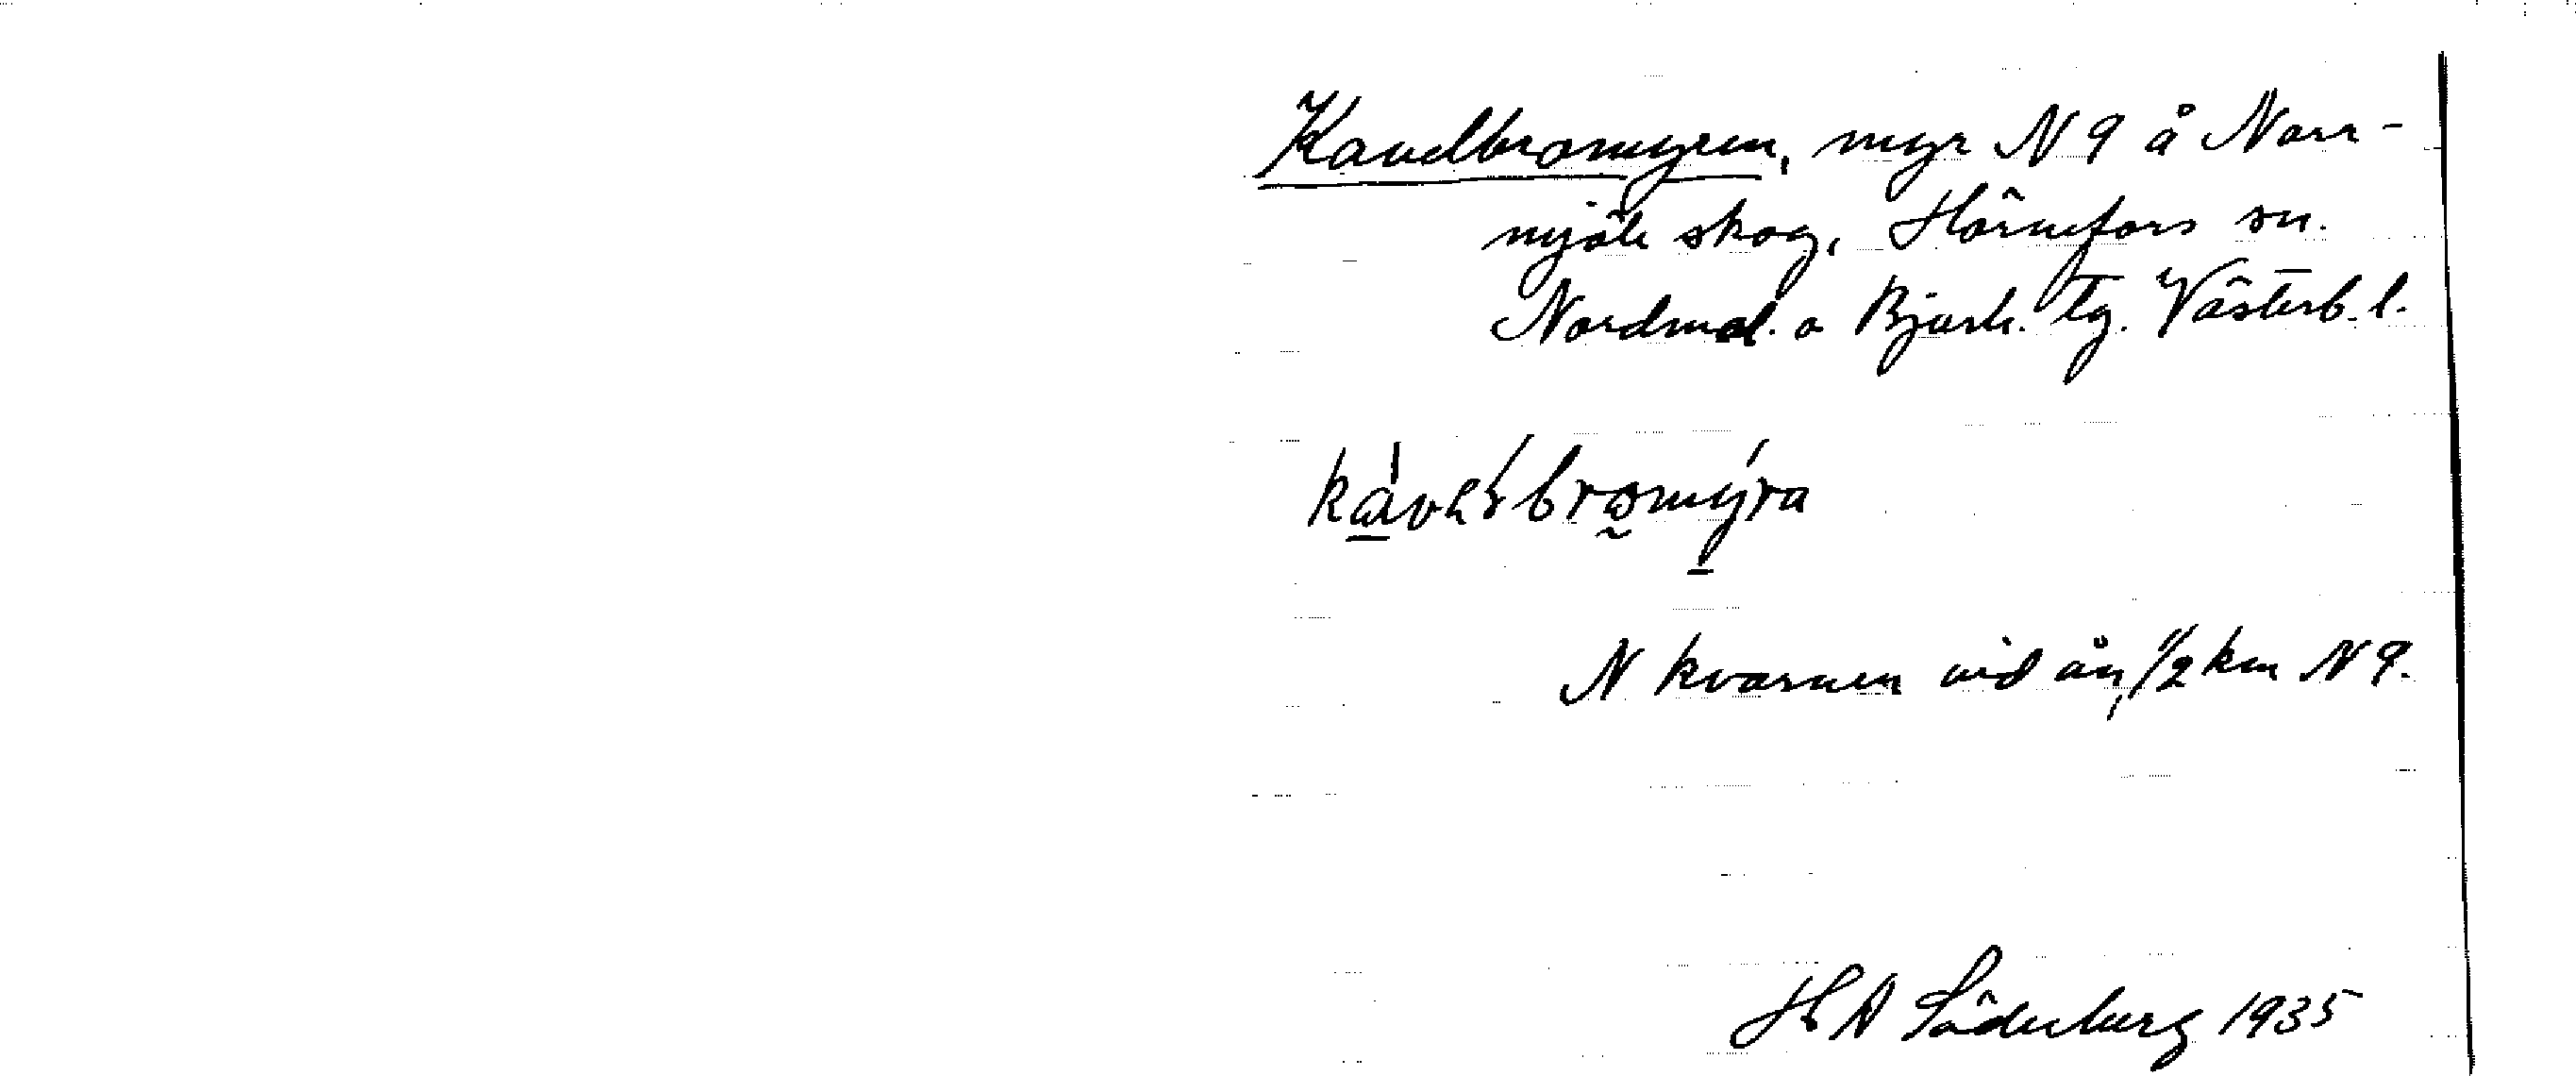 Kavelbromyren, myr N 9 å Norr-
mjöle skog, Hörnefors sn.
Nordmal. o Bjurh. tg. Västerb. l.
N kvarnen vid ån, 1/2 km N 9.
H A Söderberg 1935